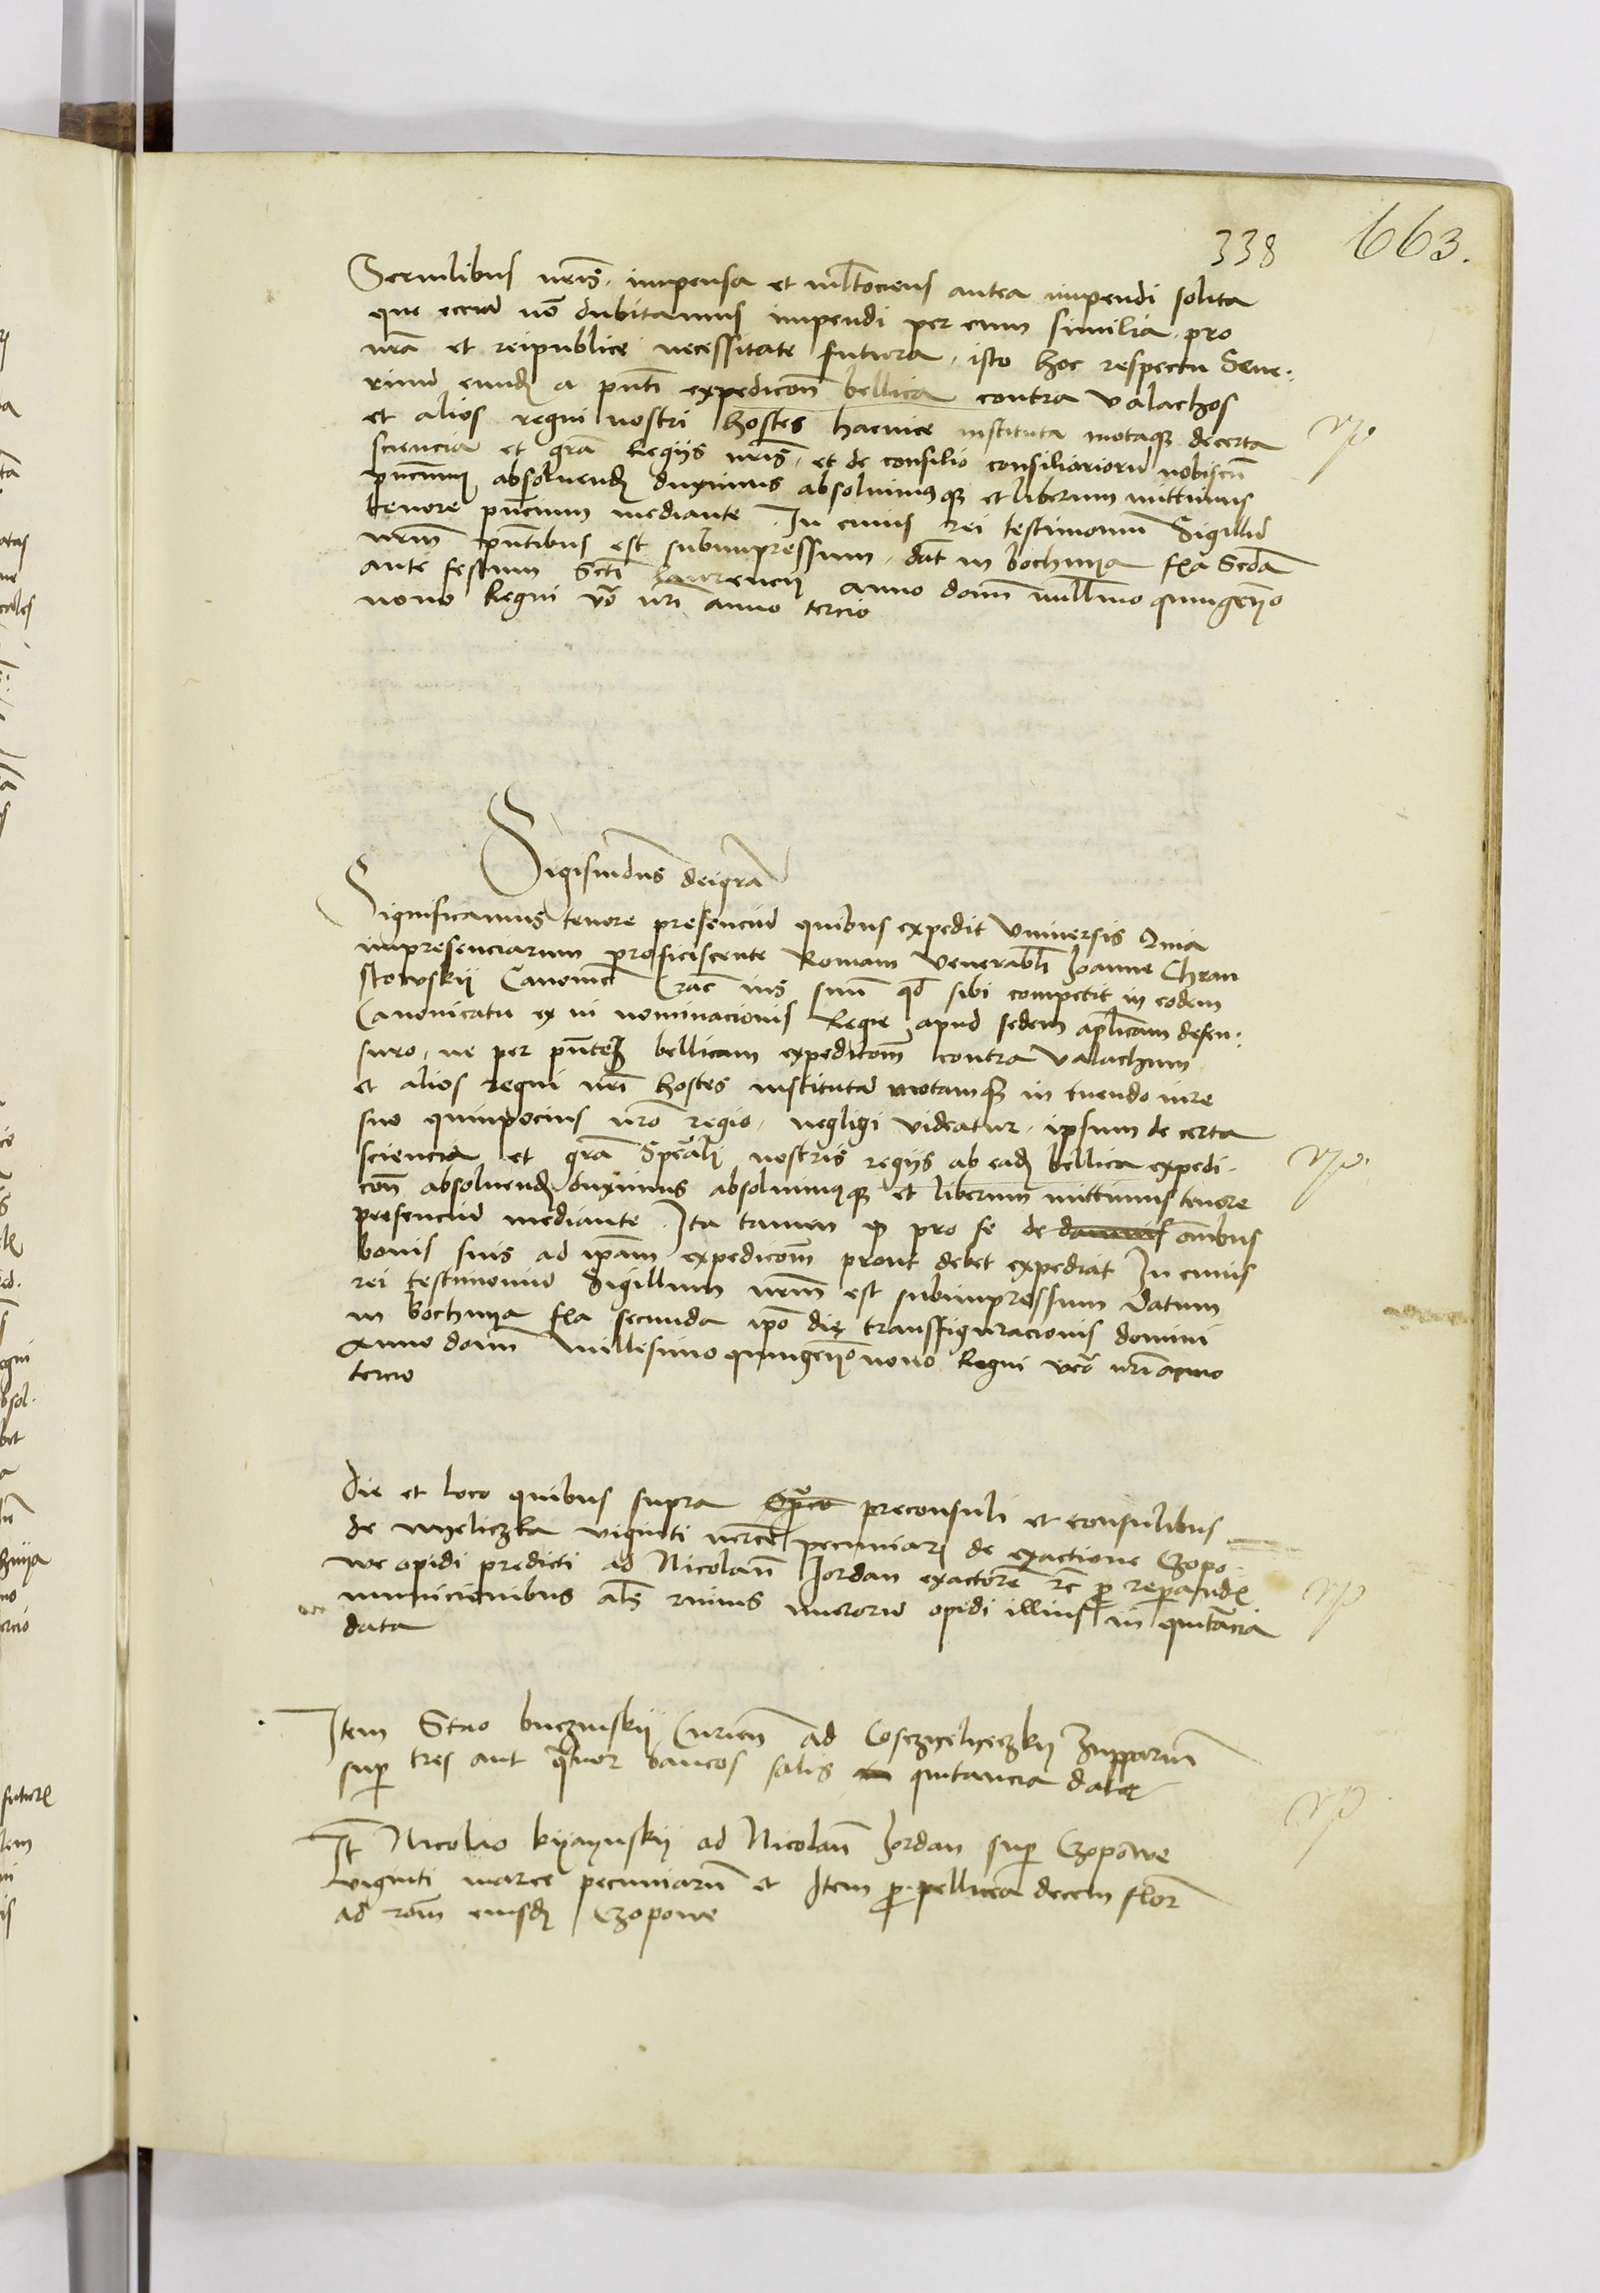 338 663.
Seruilibus nris impensa et mltociens antea impendi solita
que eciam no dubitamus impendi per eum similia pro
nra et reipublice necessitate futura, isto hoc respectu Seue:
rinu eund a pnti expedicon bellica contra valachos
et alios regni nostri hostes hacuice instituta motaq de certa
sciencia et gra Regijs nris, et de consilio consiliarioru nobiscu
absoluend duximus absoluimusq et liberum mittimus
tenore pncium mediante. In cuius rei testimoniu Sigillu
nrm pntibus est subimpressum. dat in bochnya fla Scda
ante festum Scti Laurencij anno domi millmo quingenjo
nono Regni vo nri anno tercio
Sigismdus dei gra
Significamus tenore presenciu quibus expedit vniuersis Quia
impresenciarum proficiscente Romam Venerabli Joanne Chran
stowskij Canonico Crac ius suu qd sibi competit in eodem
Canonicatu ex vi nominacionis Regie apud sedem aplicam defen:
suro, ne per pntem bellicam expedicom contra valachum
et alios regni nri hostes institutam motamq in tuendo iure
suo quinpocius nro regio, negligi videatur, ipsum de certa
sciencia et gra Speali nostris regijs ab ead bellica expedi-
con absoluend duximus absoluimusq et liberum mittimus tenore
presenciu mediante. Ita tamen q pro se de omibus
bonis suis ad ipam expedicom prout debet expediat In cuius
rei testimoniu Sigillum nrm est subimpressum Datum
in bochnya fla secunda ipo die transfiguracionis domini
Anno domi millesimo quingenjo nono Regni vero nri anno
tercio
Die et loco quibus supra preconsuli et consulibus
de wyeliczka viginti mrce pecuniar de exactione Czopo
we opidi predicti ad Nicolau Jordan exactore rc p reparand
municionibus als ruinis muroru opidi illius in quitancia
data
Item Stao buczinskij Curien ad Cosczyelyeczkij Zupparium
sup tres aut qtuor bancos salis quitancia data
It Nicolao kyyaynskij ad Nicolau Jordan sup Czopowe
viginti marce pecuniaru et Item p pellicea decem flor
ad rom eiusd Czopowe